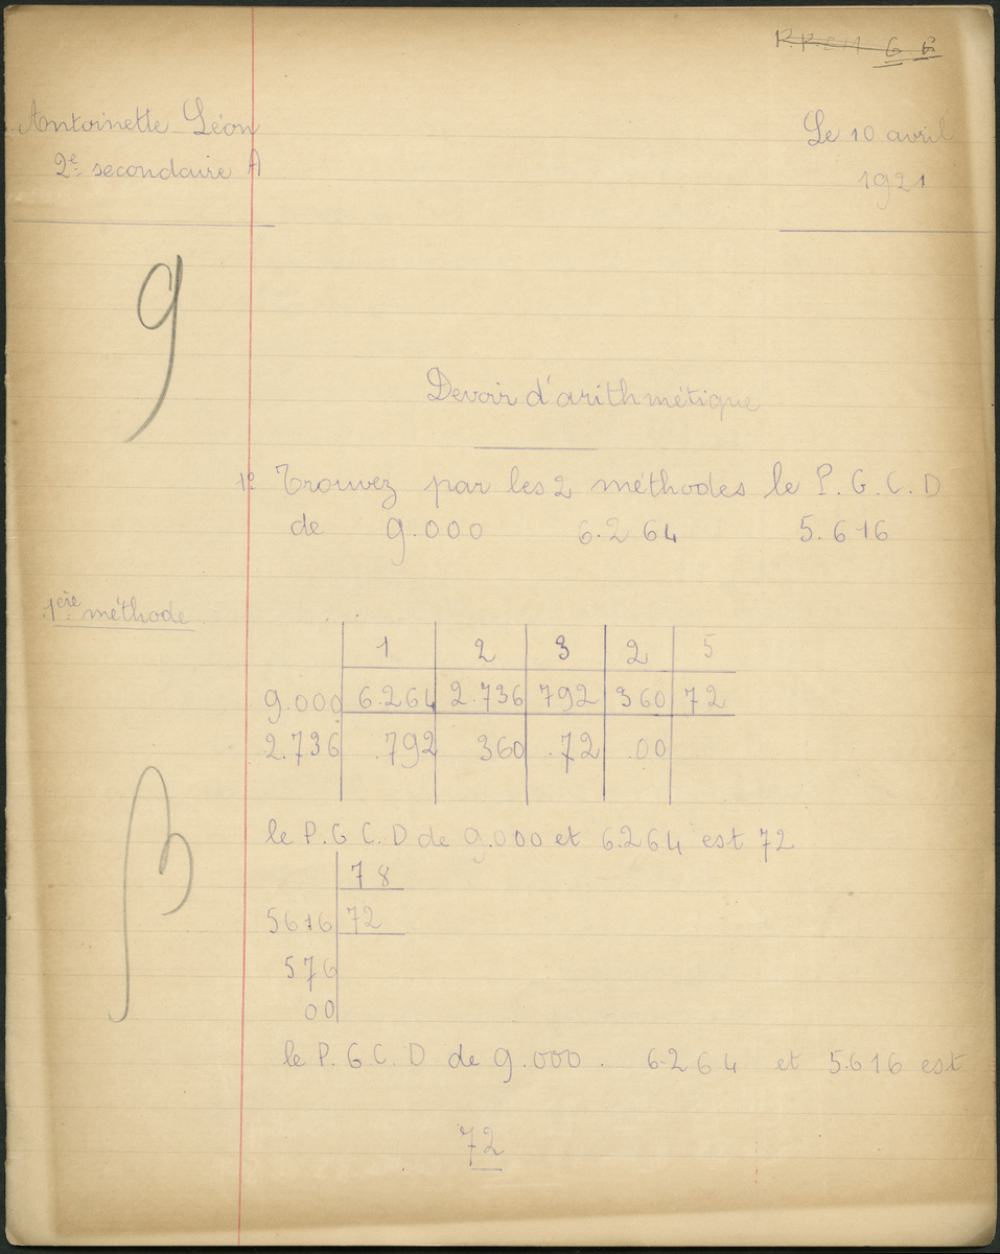 Antoinette Léon
2e secondaire A
Le 10 avril
1921
9
Devoir d'arithmétique
1º Trouvez par les 2 méthodes le P.G.C.D
de 9.000 6.264 5.616
1ère méthode
1 2 3 2 5
9.000 6.264 2.736 792 360 72
2.736 .792 360 .72 .00
le P.G.C.D de 9.000 et 6.264 est 72
78
5616 72
576
00
le P.G.C.D de 9.000 . 6.264 et 5.616 est
72